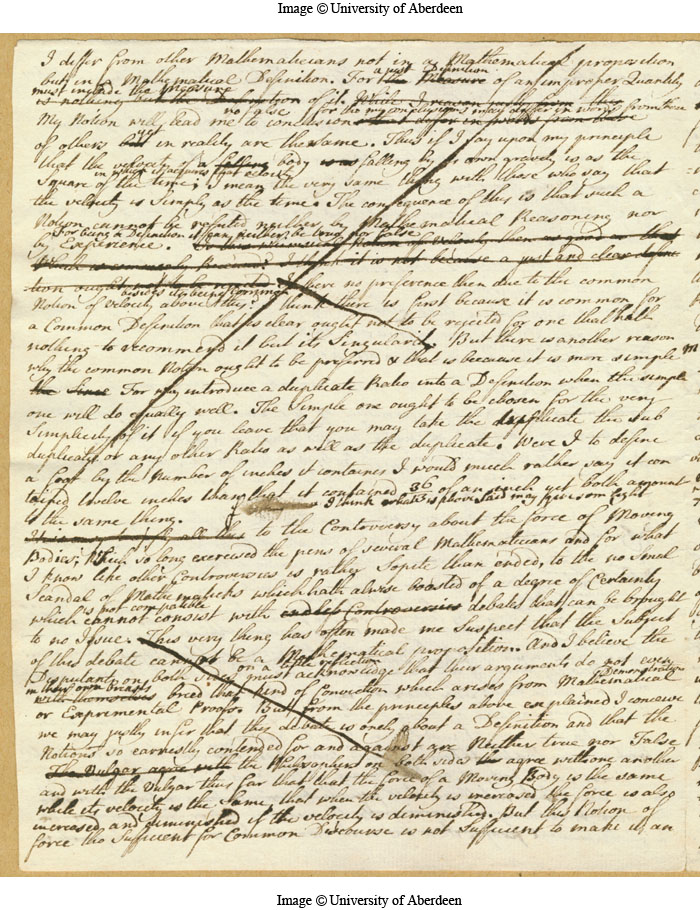 Image © University of Aberdeen
I differ from other Mathematicians not in a Mathematical proposition
but in a Mathematical Definition. For a just Definition the Measure of an improper Quantity
must include the measure
is nothing but the Definition of it.
My Notion will lead me to conclusions no false
of others but in reality are the same. Thus if I say upon my principle
that the velocity of a falling body is as falling by its own gravity is as the
Square of the time; I mean the very same thing with those who say that
the velocity is Simply as the time. The consequence of this is that such a
Notion cannot be refuted neither by Mathematical Reasoning nor
For being a Definition it can neither be true nor false
by Experience.
which is commonly Received I think it is not because a just and clear defini
tion ought not to be I here no preference then due to the common
Notion of velocity above this? I think there is first because it is common for
a Common Definition that is clear ought not to be rejected for one that hath
nothing to recommend it but its Singularity. But there is another reason
why the common Notion ought to be preferred & that is because it is more simple
the Since For why introduce a duplicate Ratio into a Definition when the simple
one will do equally well. The Simple one ought to be chosen for the very
Simplicity of it if you leave that you may take the duplicate the sub
duplicate or any other Ratio as well as the duplicate. Were I to define
a foot by the Number of inches it contains I would much rather say it con
tained twelve inches than that it contained 36 of an inch yet both amount
to the same thing. I think what is above said may give som light
to the Controversy about the force of Moving
Bodies; which so long exercised the pens of several Mathematicians and for what
I know like other Controversies is rather Sopite than ended, to the no small
Scandal of Mathematicks which hath alwise boasted of a degree of Certainty
which is not compatible cannot consist with endless Controversies debates that can be brought
to no Issue. This very thing has often made me Suspect that the Subject
of this debate cannot be a Mathematical proposition. And I believe the
Disputants on both Sides must on a little reflection acknowledge that their arguments do not even
in their own breasts with themselves breed that kind of Conviction which arises from Mathematical Demonstration
or Experimental Proofs. But from the principles above explained I conceive
we may justly infer that this debate is onely about a Definition and that the
Notions so earnestly contended for and against are Neither true nor False
The Vulgar agree with the Philosophers on both sides agree with one another
and with the Vulgar thus far that that the force of a Moving Body is the same
while its velocity is the Same, that when the velocity is increased the force is also
increased and diminished if the velocity is diminished. But this Notion of
force tho Sufficient for Common Discourse is not Sufficient to make it an
Image © University of Aberdeen